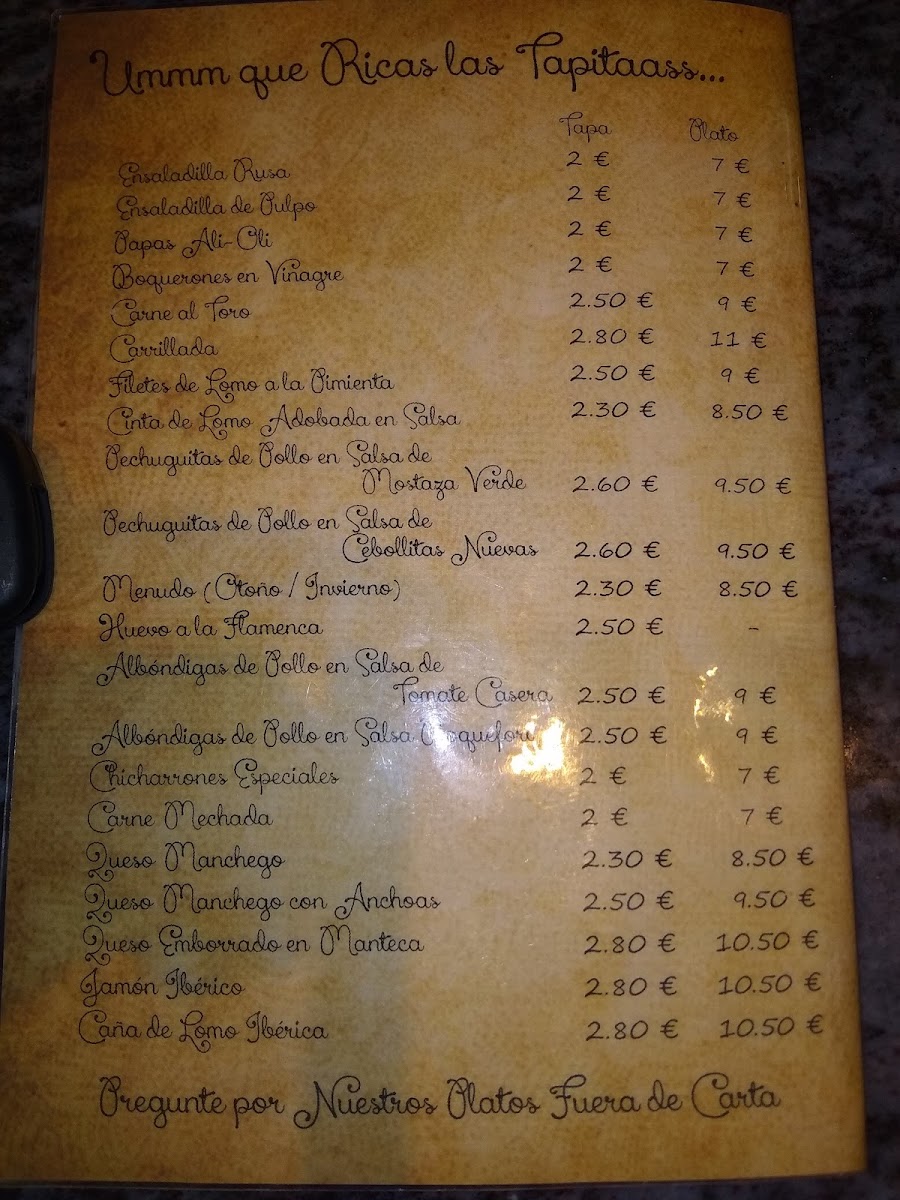 Ummm que Ricas las Tapitaass...
Tapa Plato
Ensaladilla Rusa 2 € 7 €
Ensaladilla de Pulpo 2 € 7 €
Papas Ali-Oli 2 € 7 €
Boquerones en Vinagre 2 € 7 €
Carne al Toro 2.50 € 9 €
Carrillada 2.80 € 11 €
Filetes de Lomo a la Pimienta 2.50 € 9 €
Cinta de Lomo Adobada en Salsa 2.30 € 8.50 €
Pechuguitas de Pollo en Salsa de
Mostaza Verde 2.60 € 9.50 €
Pechuguitas de Pollo en Salsa de
Cebollitas Nuevas 2.60 € 9.50 €
Menudo (Otoño / Invierno) 2.30 € 8.50 €
Huevo a la Flamenca 2.50 € -
Albóndigas de Pollo en Salsa de
Tomate Casera 2.50 € 9 €
Albóndigas de Pollo en Salsa Roquefort 2.50 € 9 €
Chicharrones Especiales 2 € 7 €
Carne Mechada 2 € 7 €
Queso Manchego 2.30 € 8.50 €
Queso Manchego con Anchoas 2.50 € 9.50 €
Queso Emborrado en Manteca 2.80 € 10.50 €
Jamón Ibérico 2.80 € 10.50 €
Caña de Lomo Ibérica 2.80 € 10.50 €
Pregunte por Nuestros Platos Fuera de Carta